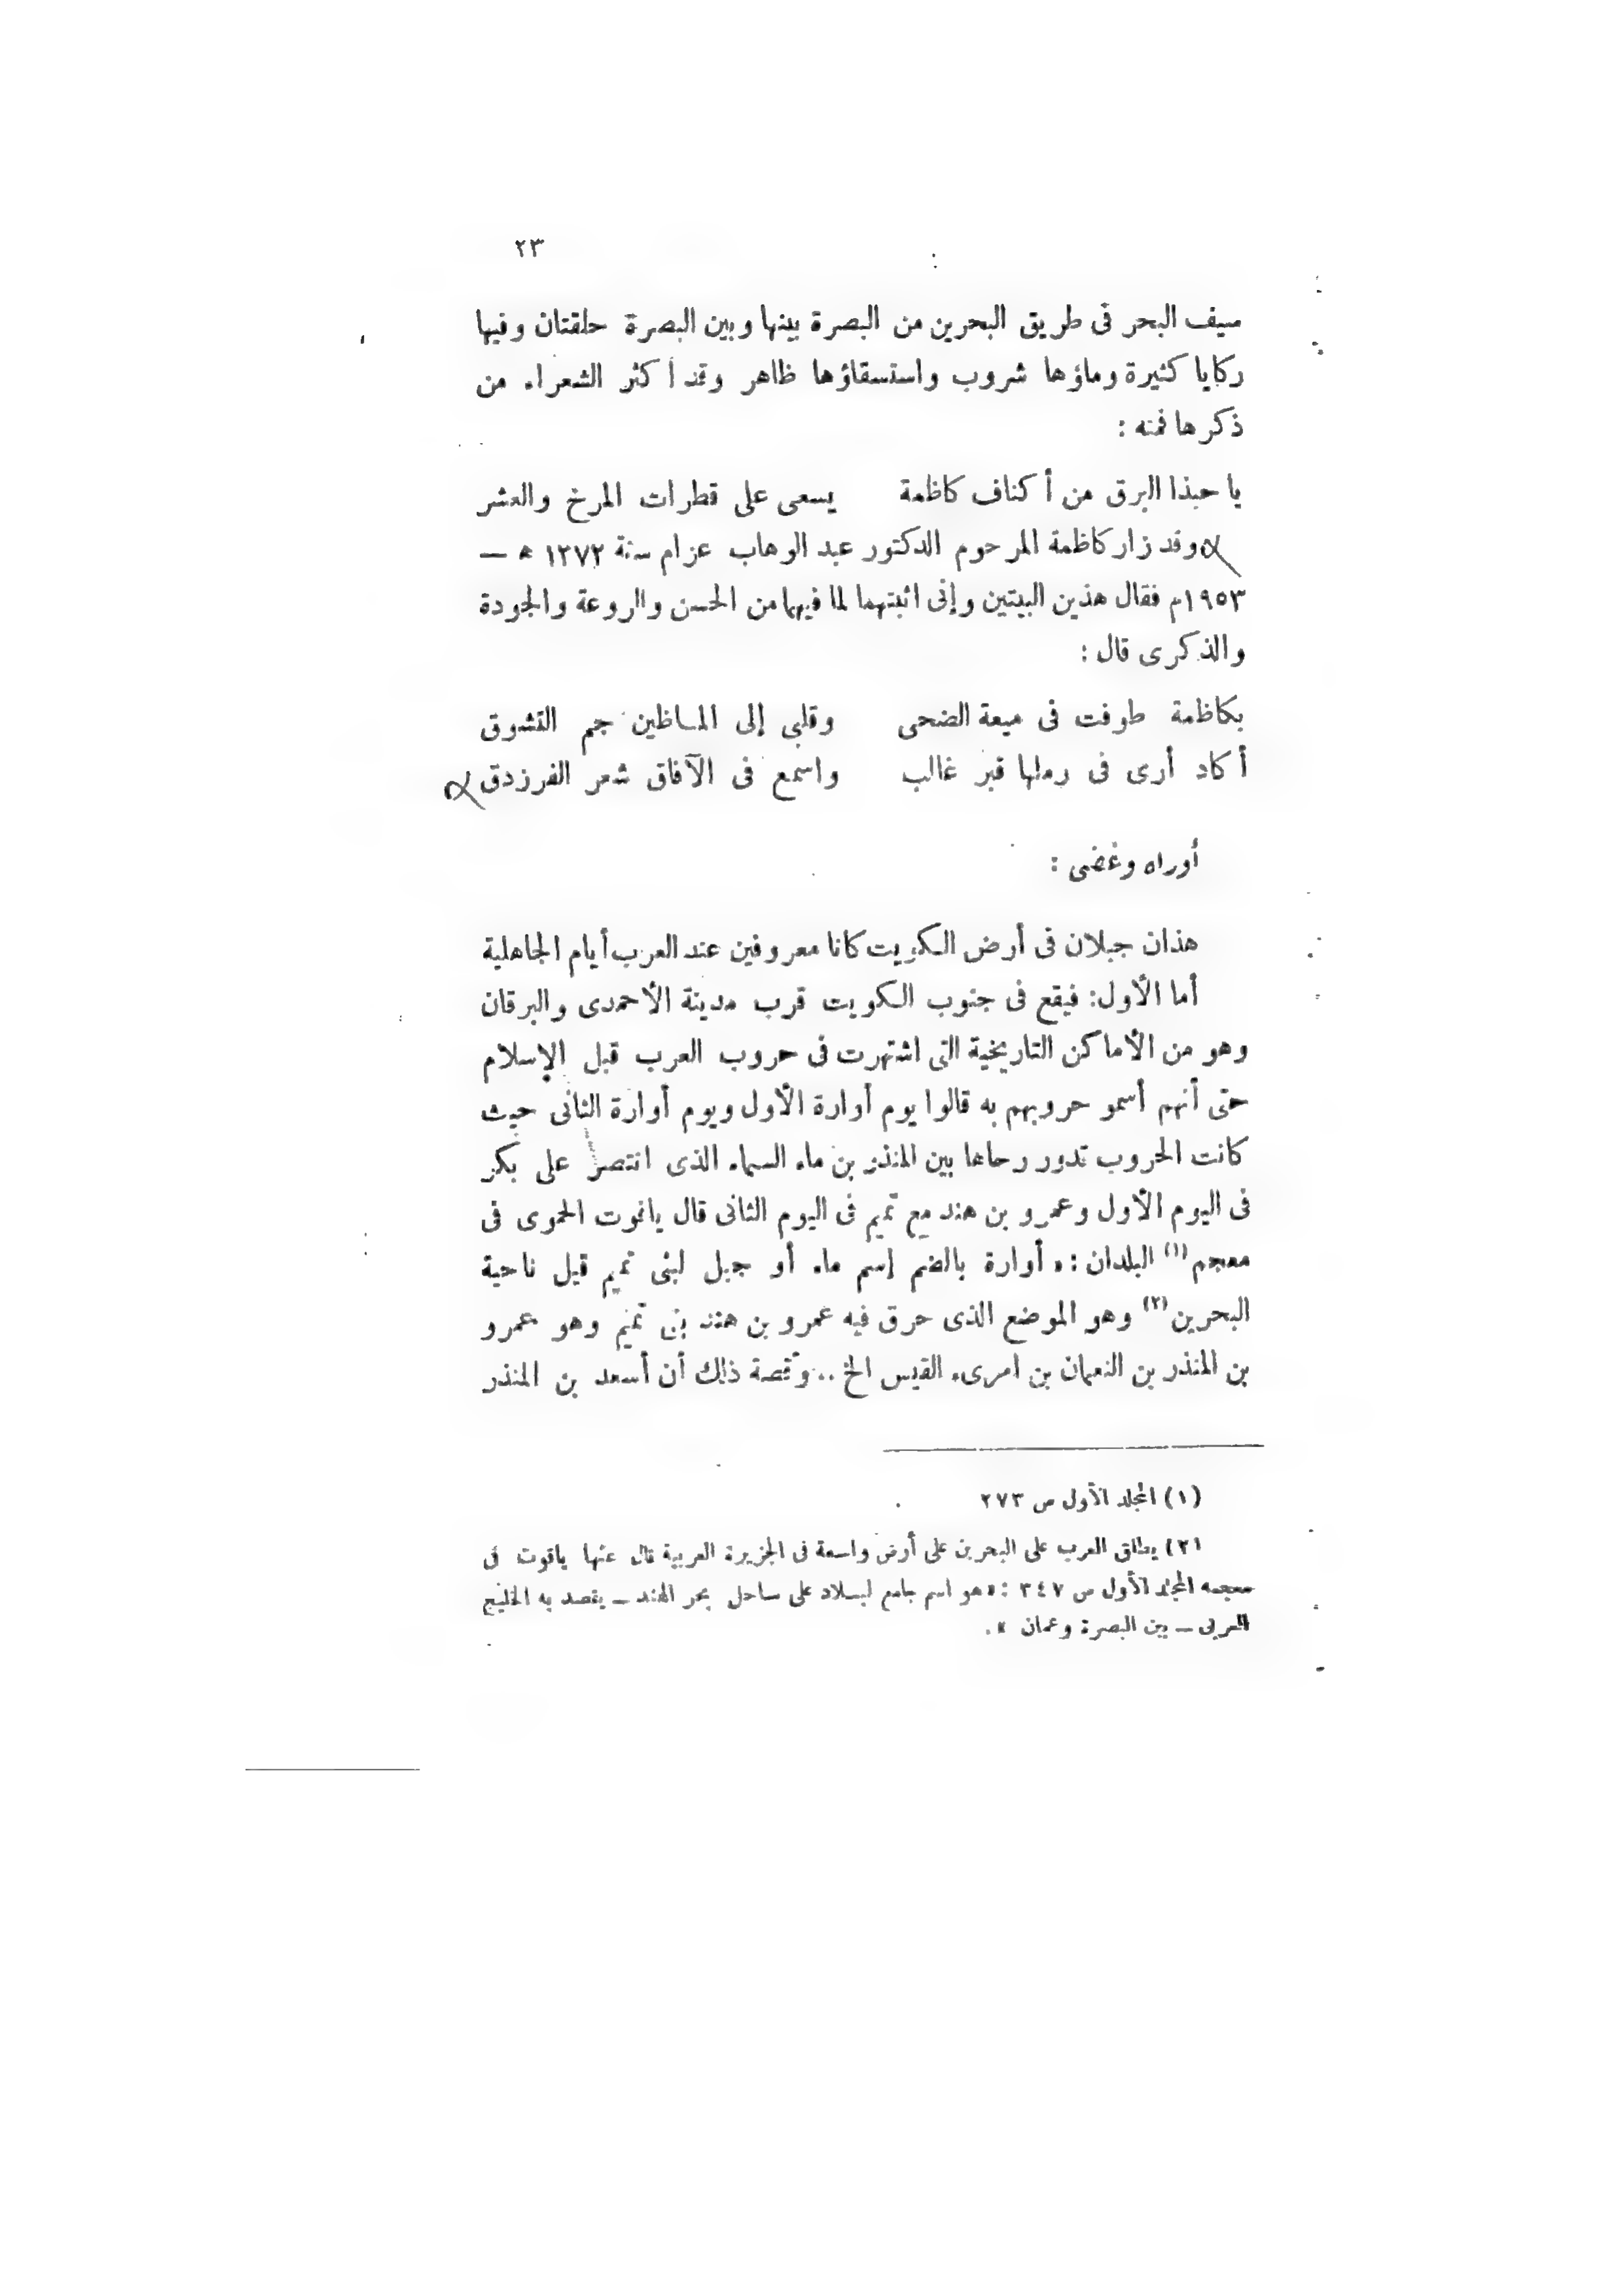 ٢٣
سيف البحر فى طريق البحرين من البصرة بينها وبين البصرة حلقتان وفيها
ركايا كثيرة وماؤها شروب واستسقاؤها ظاهر وقد أكثر الشعراء من
ذكرها فمنه :
يا حبذا البرق من أكناف كاظمة يسعى على قطرات المرخ والعشر
وقد زار كاظمة المرحوم الدكتور عبد الوهاب عزام سنة ١٣٧٢ هـ —
١٩٥٣م فقال هذين البيتين وإنى اثبتهما لما فيهما من الحسن والروعة والجودة
والذكرى قال :
بكاظمة طوفت فى ميعة الضحى وقلبى إلى الماظين جم التشوق
أكاد أرى فى رملها قبر غالب واسمع فى الآفاق شعر الفرزدق
أوراه وغضى :
هذان جبلان فى أرض الكويت كانا معروفين عند العرب أيام الجاهلية
أما الأول: فيقع فى جنوب الكويت قرب مدينة الأحمدى والبرقان
وهو من الأماكن التاريخية التى اشتهرت فى حروب العرب قبل الإسلام
حتى أنهم أسمو حروبهم به قالوا يوم أوارة الأول ويوم أوارة الثانى حيث
كانت الحروب تدور رحاها بين المنذر بن ماء السماء الذى انتصر على بكر
فى اليوم الأول وعمرو بن هند مع تميم فى اليوم الثانى قال ياقوت الحموى فى
معجم (١) البلدان : « أوارة بالضم إسم ماء أو جبل لبنى تميم قبل ناحية
البحرين (٢) وهو الموضع الذى حرق فيه عمرو بن هند بنى تميم وهو عمرو
بن المنذر بن النعمان بن امرىء القيس الخ .. وقصة ذلك أن أسعد بن المنذر
(١) المجلد الأول ص ٢٧٣
(٢) يطلق العرب على البحرين على أرض واسعة فى الجزيرة العربية قال عنها ياقوت فى
معجمه المجلد الأول ص ٣٤٧ : « هو اسم جامع لبلاد على ساحل بحر الهند — يقصد به الخليج
العربى — بين البصرة وعمان » .